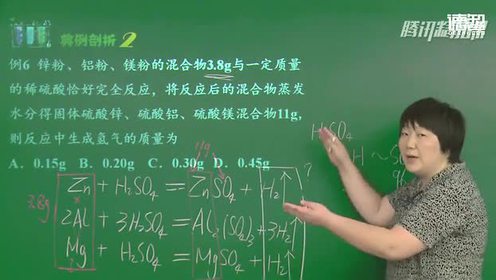 典例剖析 2
腾讯精品课
例6 锌粉、铝粉、镁粉的混合物3.8g与一定质量
的稀硫酸恰好完全反应，将反应后的混合物蒸发
水分得固体硫酸锌、硫酸铝、硫酸镁混合物11g,
则反应中生成氢气的质量为
A．0.15g B．0.20g C．0.30g D．0.45g
11g
H₂SO₄
H ~ SO
96
3.8g
Zn + H₂SO₄ = ZnSO₄ + H₂↑ ?
2Al + 3H₂SO₄ = Al₂(SO₄)₃ + 3H₂↑
Mg + H₂SO₄ = MgSO₄ + H₂↑